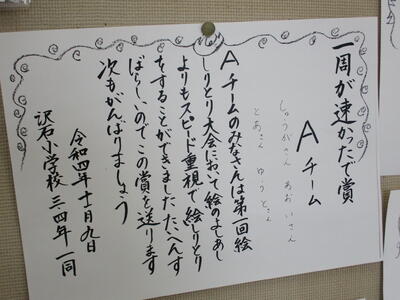 一周が速かったで賞
Aチーム
しゅうがさん あおいさん
とあさん ゆうとさん
Aチームのみなさんは第一回絵
しりとり大会において絵のよしあし
よりもスピード重視で絵しりとり
をすることができました。たいへんす
ばらしいのでこの賞を送ります
次もがんばりましょう
令和四年十一月九日
沢石小学校三、四年一同